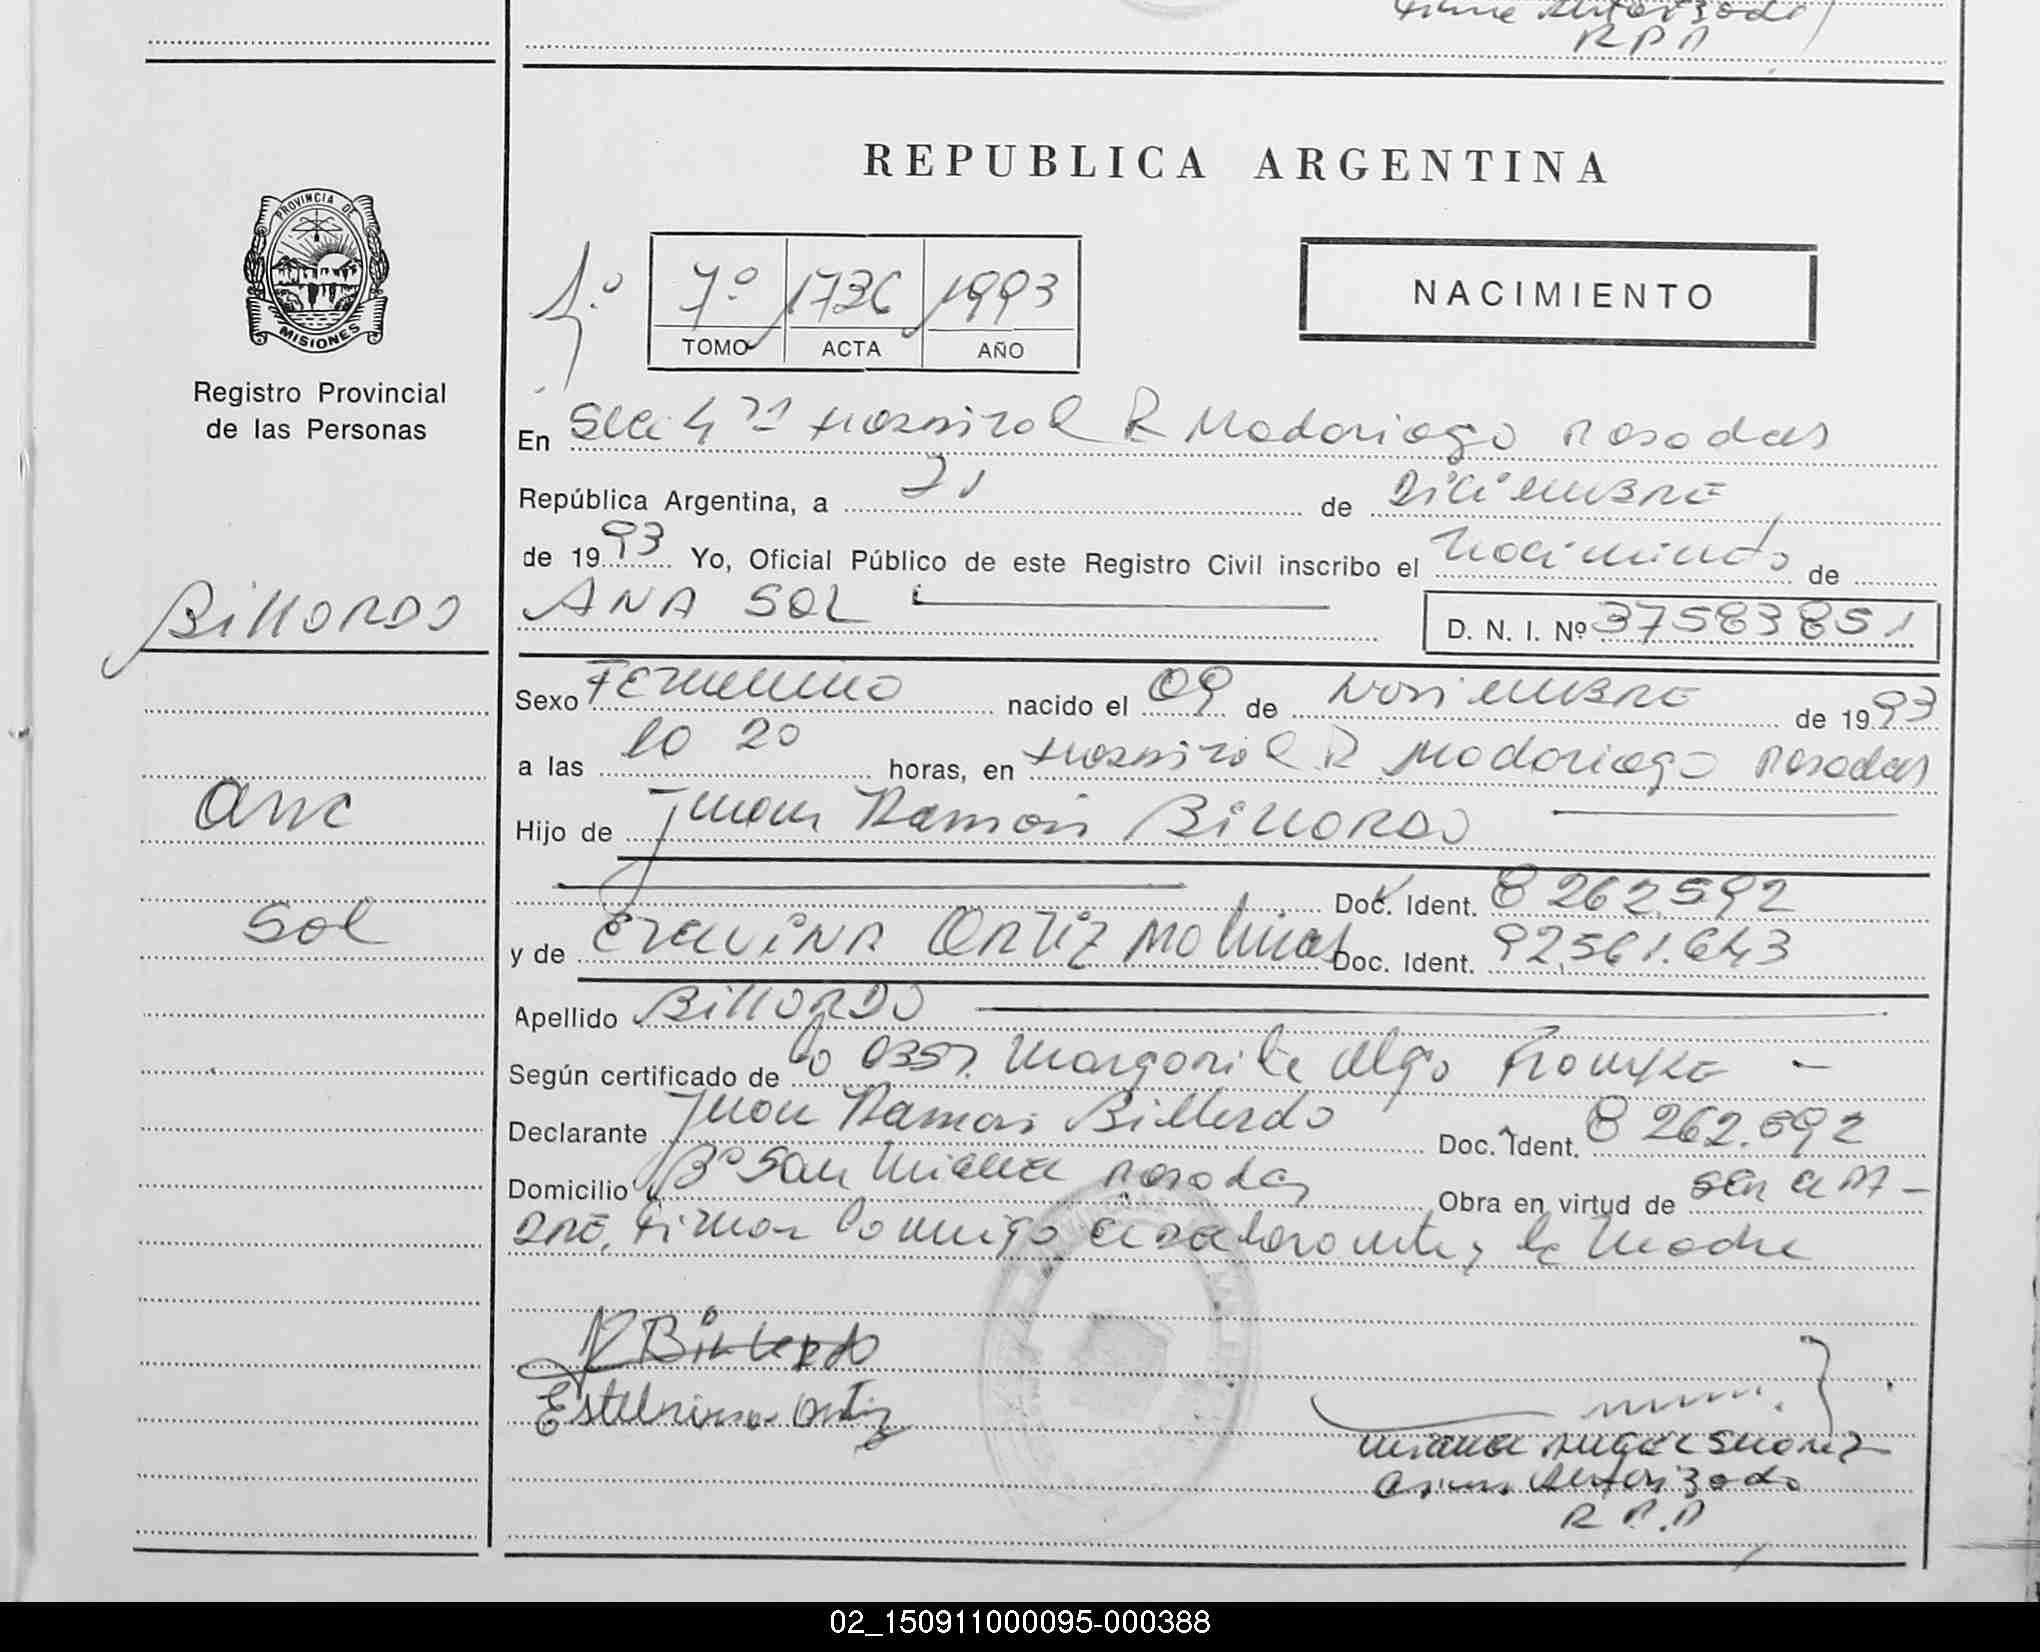 Firme Autorizada
R P P
REPUBLICA ARGENTINA
PROVINCIA DE
MISIONES
Registro Provincial
de las Personas
7º 1736 1993
TOMO ACTA AÑO
NACIMIENTO
En Sec 4ta Hospital R Madariaga Posadas
República Argentina, a 21 de Diciembre
de 1993 Yo, Oficial Público de este Registro Civil inscribo el Nacimiento de
ANA SOL
D. N. I. Nº 37583851
Billordo
Ana
Sol
Sexo Femenino nacido el 09 de Noviembre de 1993
a las 10 20 horas, en Hospital R Madariaga Posadas
Hijo de Juan Ramon Billordo
Doc. Ident. 8 262.592
y de Ortiz Molinas Doc. Ident. 92.561.643
Apellido Billordo
Según certificado de Margarita Olga
Declarante Juan Ramon Billordo Doc. Ident. 8 262.592
Domicilio Bº San Miguel Posadas Obra en virtud de ser el PA-
DRE, Firman Conmigo el declarante y la Madre
Billordo
Ortiz
Miguel Angel Suarez
Firma Autorizada
R P P
02_150911000095-000388